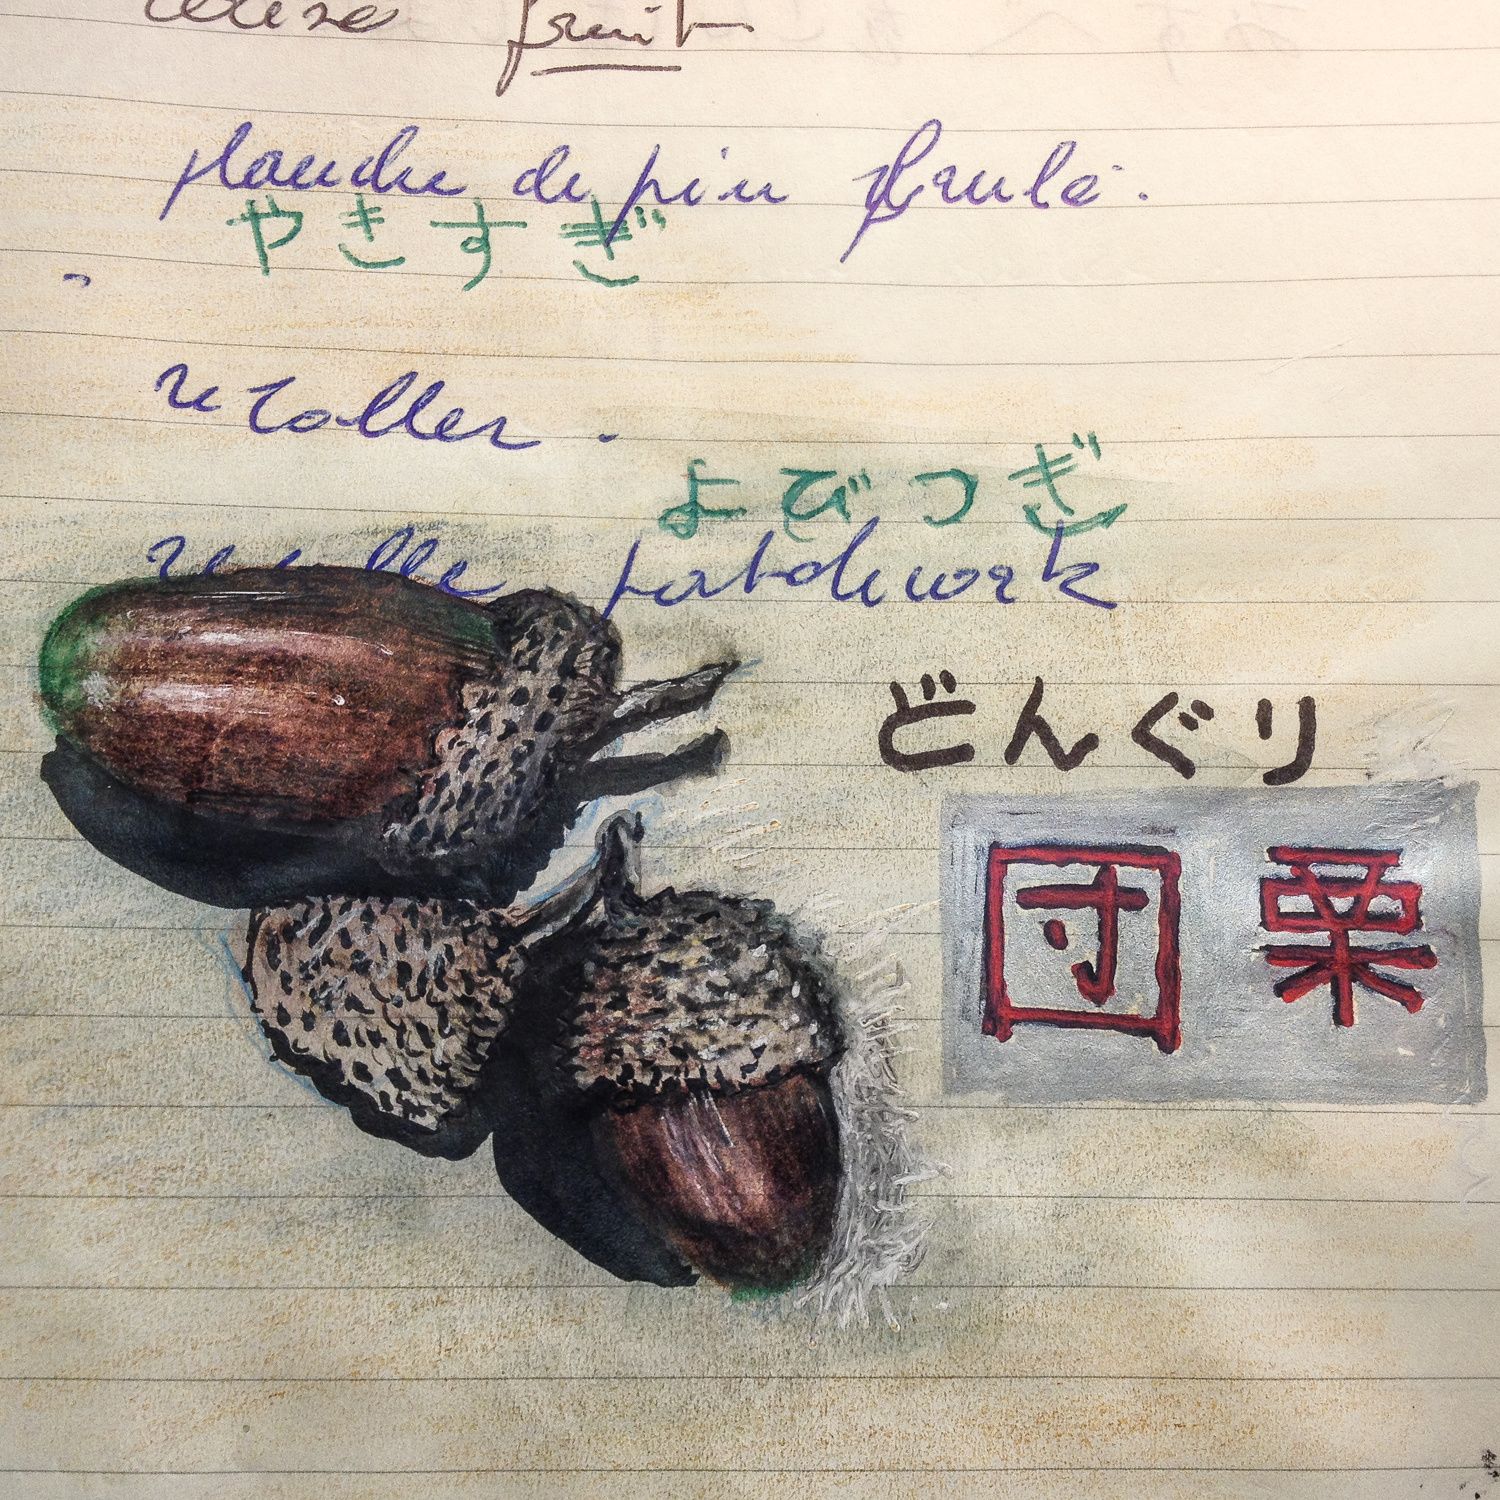 cerise fruit
planche de pin brulé.
やきすぎ
recoller.
よびつぎ
recolle patchwork
どんぐり
団栗